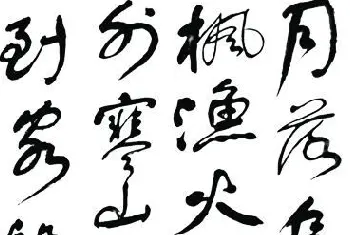 月落
枫渔火
外寒山
到客